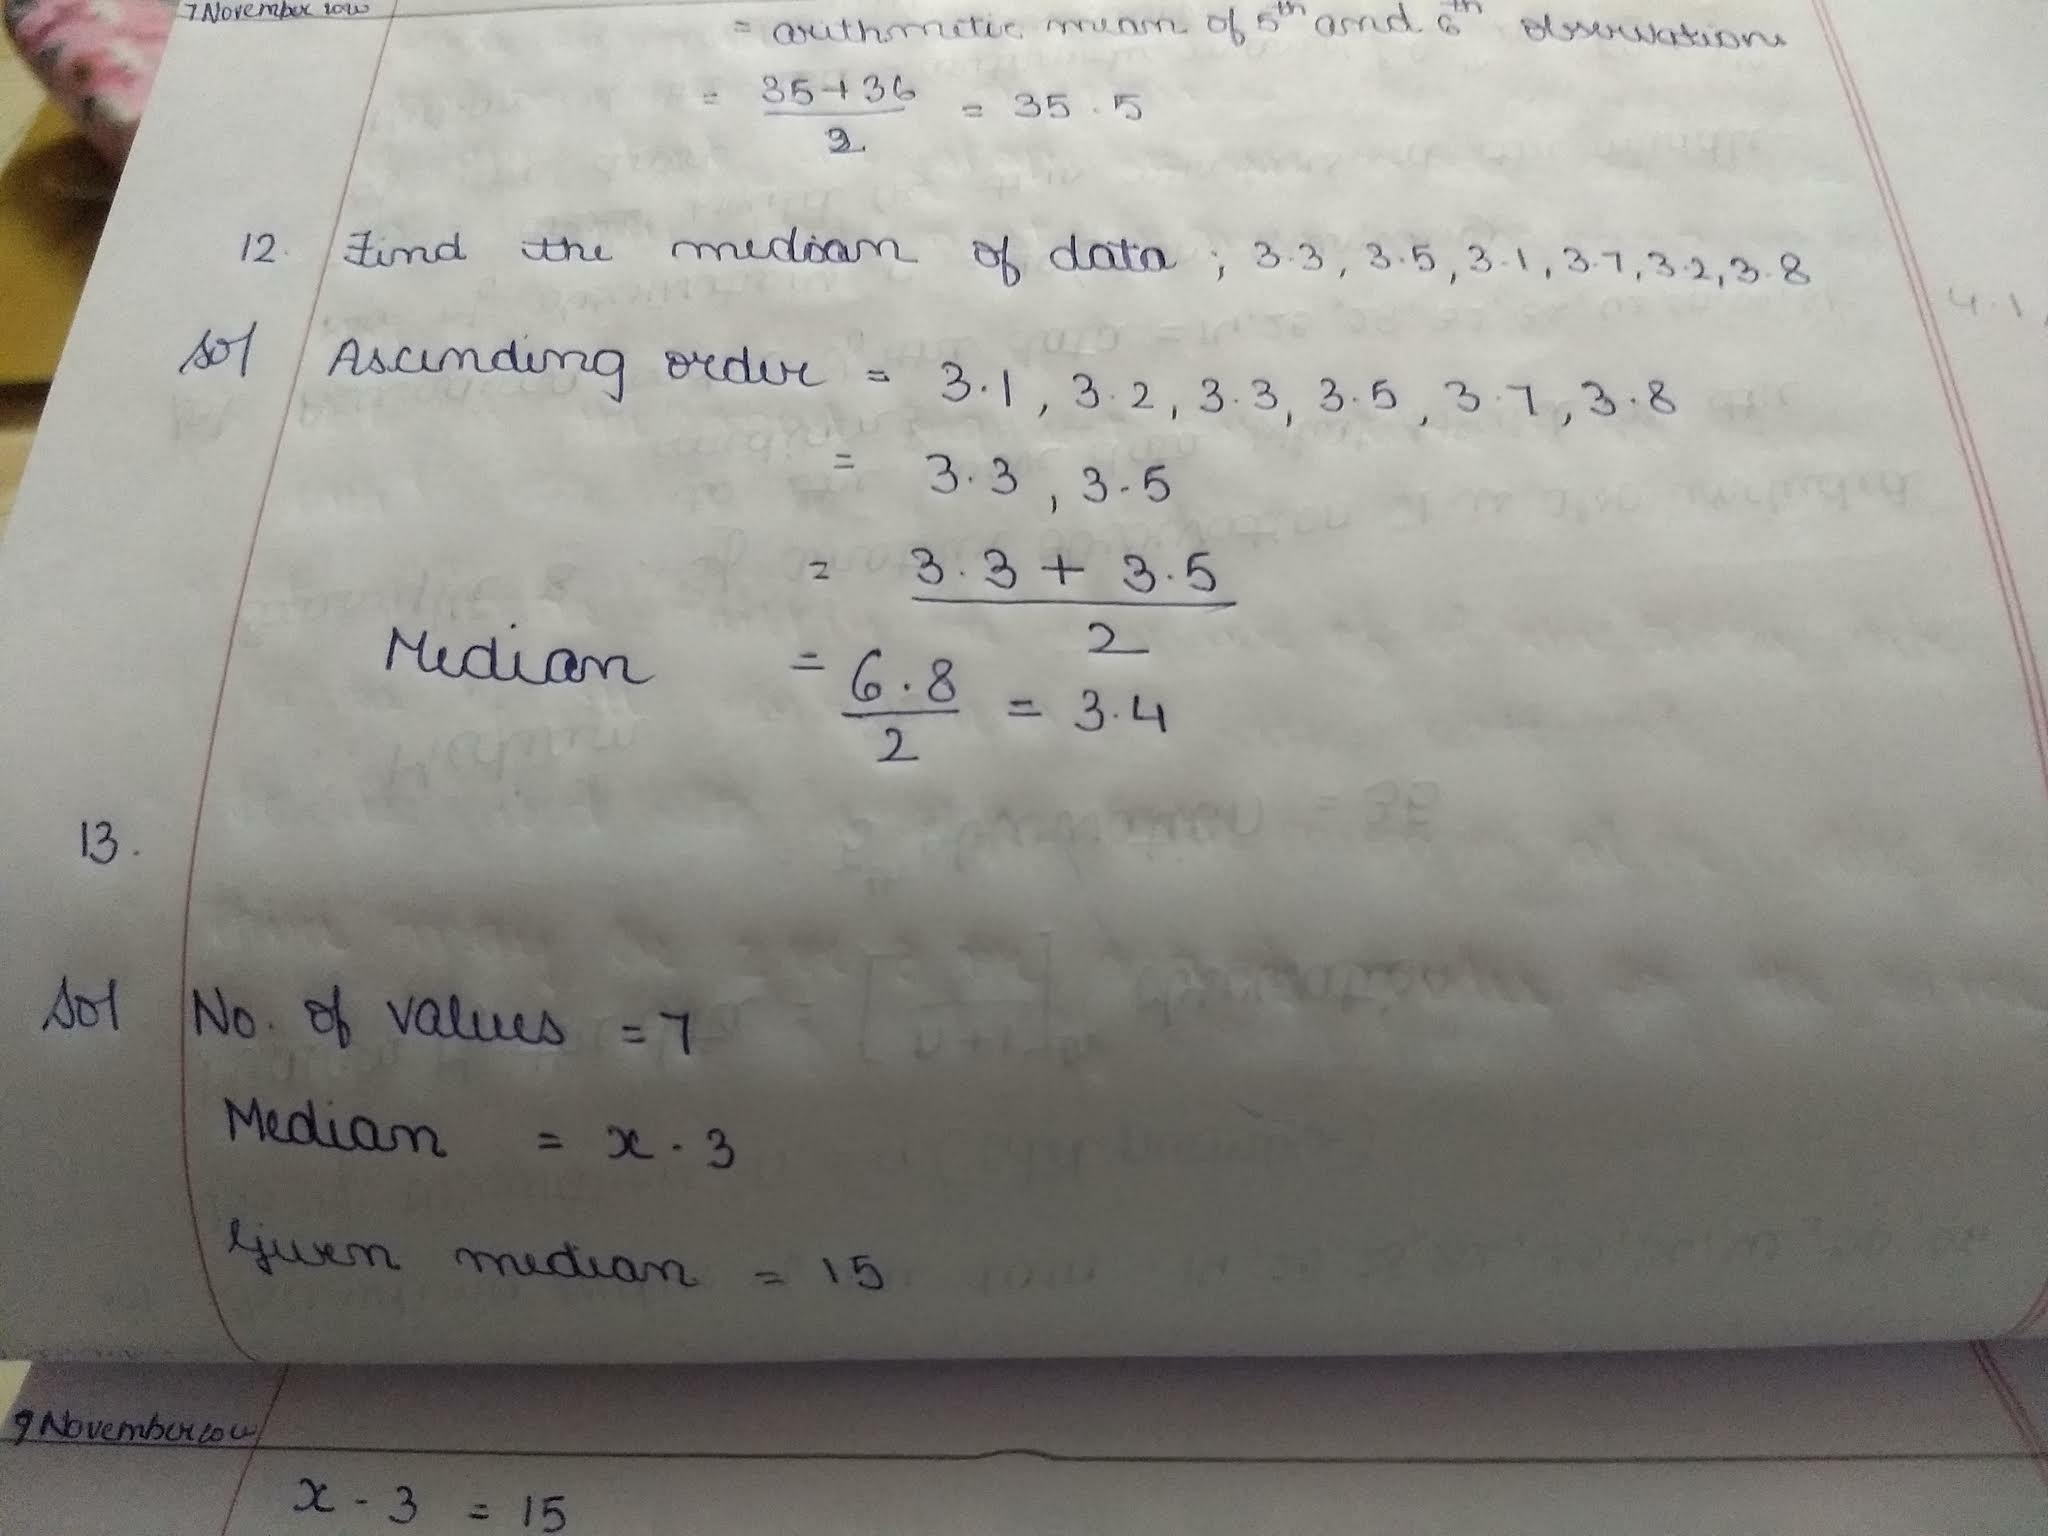 7 November 2020
= arithmetic mean of 5th and 6th observations
= 35+36/2 = 35.5
12. Find the median of data ; 3.3, 3.5, 3.1, 3.7, 3.2, 3.8
Sol Ascending order = 3.1, 3.2, 3.3, 3.5, 3.7, 3.8
= 3.3, 3.5
= 3.3 + 3.5/2
Median = 6.8/2 = 3.4
13.
Sol No. of values = 7
Median = x - 3
Given median = 15
9 November 2020
x - 3 = 15